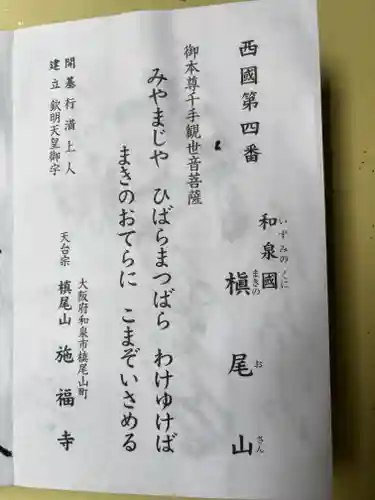 西國第四番
和泉國
いずみのくに
槇尾山
まきのおさん
御本尊千手観世音菩薩
みやまじや ひばらまつばら わけゆけば
まきのおてらに こまぞいさめる
開基 行満上人
建立 欽明天皇御宇
大阪府和泉市槙尾山町
天台宗 槙尾山 施福寺